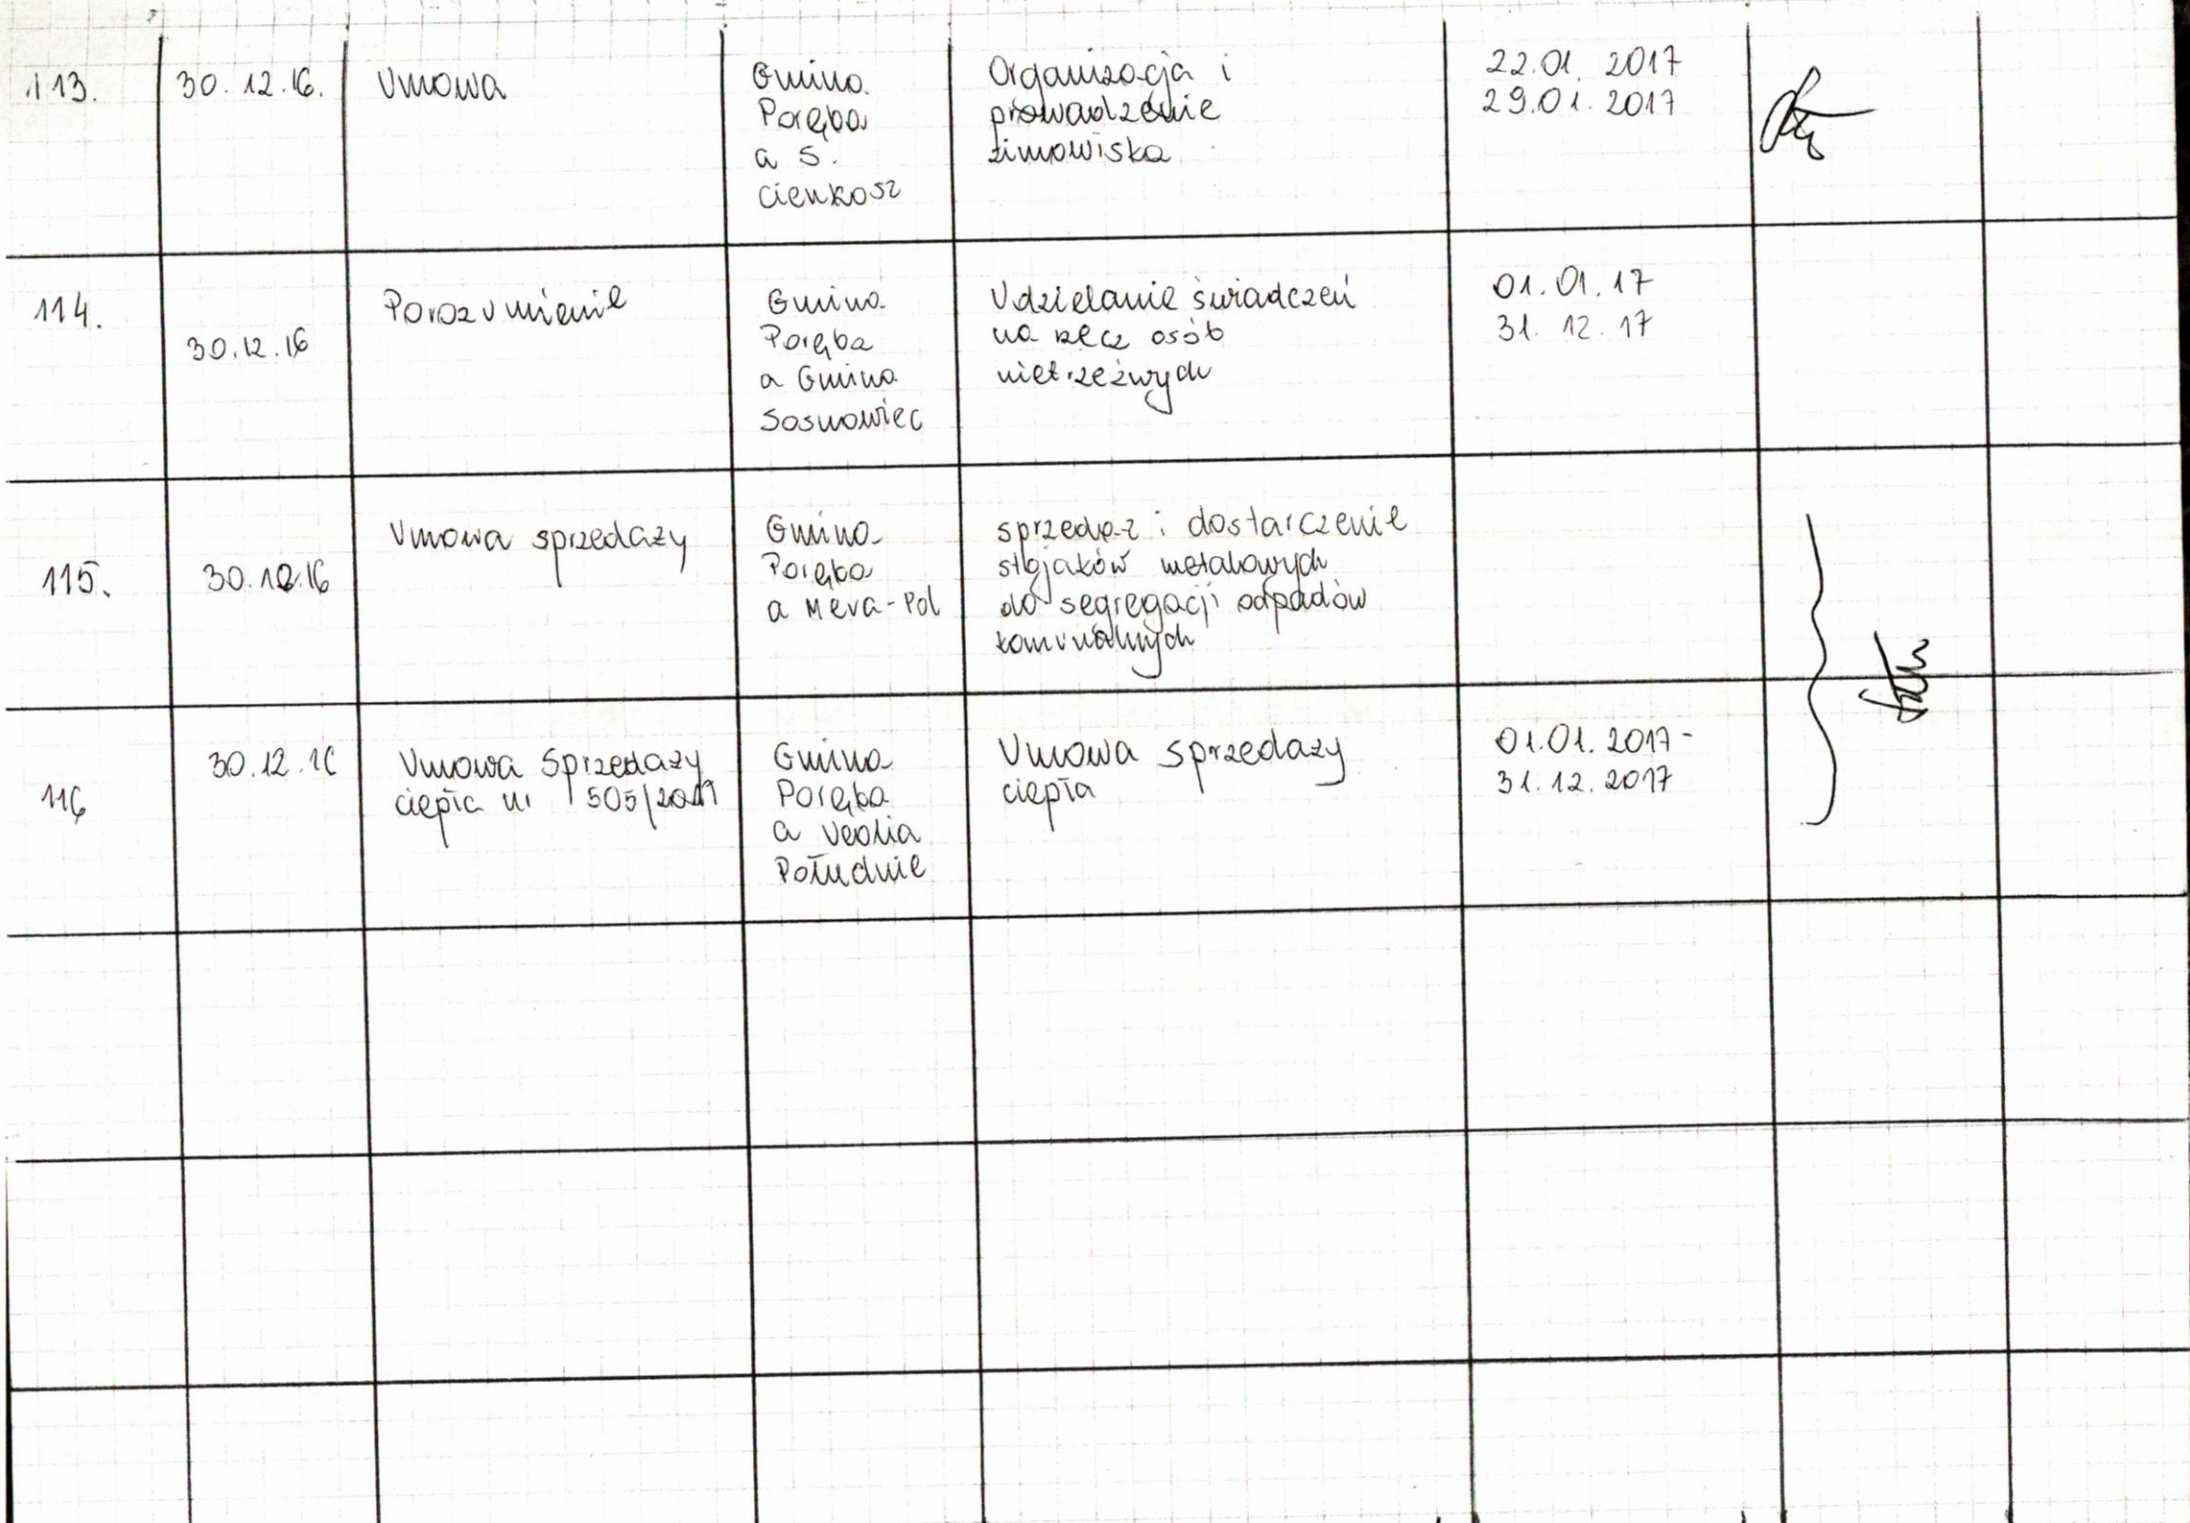 113.
30.12.16.
Umowa
Gmina
Poręba
a S.
Cienkosz
Organizacja i
prowadzenie
zimowiska
22.01.2017
29.01.2017
114.
30.12.16
Porozumienie
Gmina
Poręba
a Gmina
Sosnowiec
Udzielanie świadczeń
na rzecz osób
nietrzeźwych
01.01.17
31.12.17
115.
30.12.16
Umowa sprzedaży
Gmina
Poręba
a Meva-Pol
sprzedaż i dostarczenie
stojaków metalowych
do segregacji odpadów
komunalnych
116
30.12.16
Umowa Sprzedaży
ciepła nr
Gmina
Poręba
a Veolia
Południe
Umowa sprzedaży
ciepła
01.01.2017-
31.12.2017